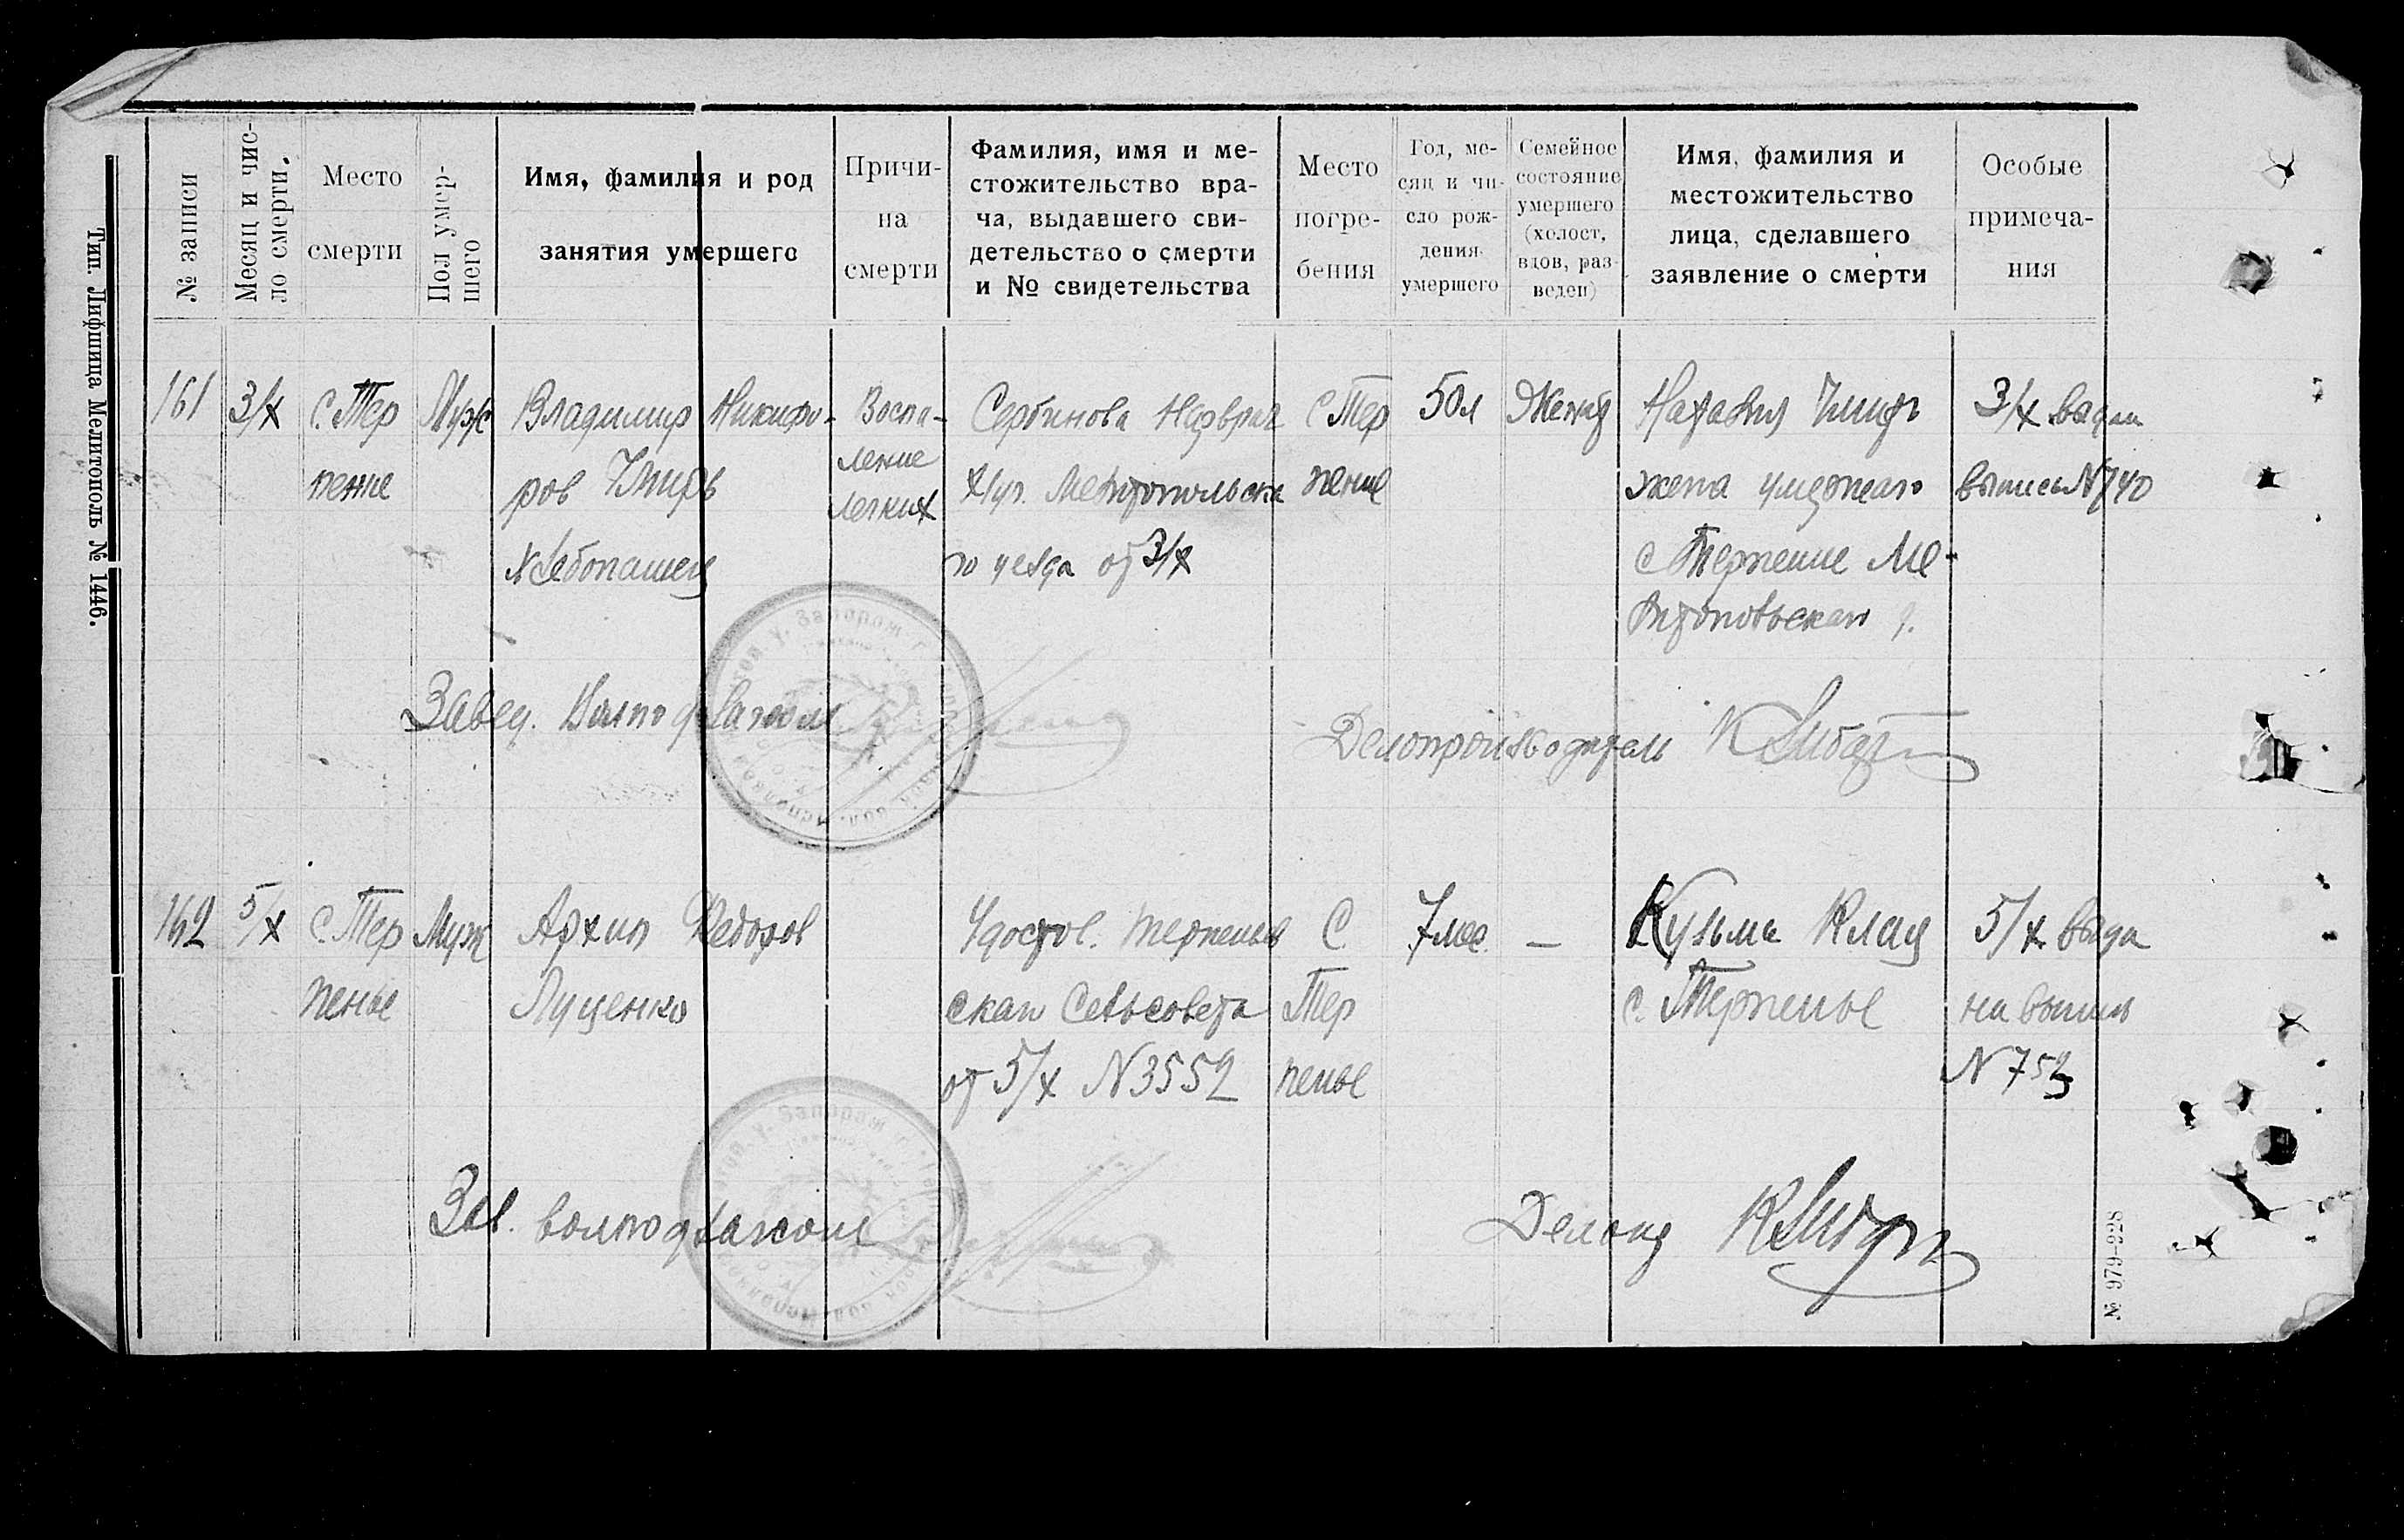 № записи
Месяц и чис-
ло смерти.
Место
смерти
Пол умер-
шего
Имя, фамилия и род
занятия умершего
Причи-
на
смерти
Фамилия, имя и ме-
стожительство вра-
ча, выдавшего сви-
детельство о смерти
и № свидетельства
Место
погре-
бения
Год, ме-
сяц и чи-
сло рож-
дения
умершего
Семейное
состояние
умершего
(холост,
вдов, раз-
веден)
Имя, фамилия и
местожительство
лица, сделавшего
заявление о смерти
Особые
примеча-
ния
161
3/X
С. Тер
пение
Муж
Владимир Никифо-
ров
хлебопашец
Воспа-
ление
легких
Сербинова
Мелитопольска
го уезда от 3/X
С Тер
пение
50 л
Женат
Наталия
жена умершаго
с Терпение Ме-
литопольскаго у.
3/X выдан
выпись N 740
Завед. Волподзагсом
Делопроизводитель
162
5/X
С. Тер
пенье
Муж
Архип Федоров
Луценко
Удостов. Терпеньев
скаго Сельсовета
от 5/X N 3552
С.
Тер
пенье
7 мес.
—
Кузьма
с. Терпенье
5/X выда
на выпись
N 752
Зав. волподзагсом
Делопр
Тип. Лифшица Мелитополь № 1446.
№ 979-228